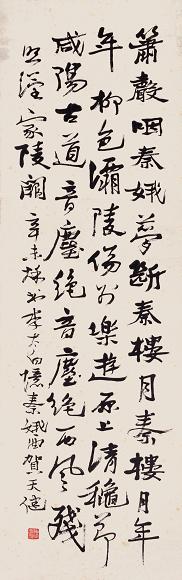 簫聲咽秦娥夢斷秦樓月秦樓月年
年柳色灞陵傷別樂遊原上清秋節
咸陽古道音塵絕音塵絕西風殘
照漢家陵闕辛未秋书李太白憶秦娥曲賀天健